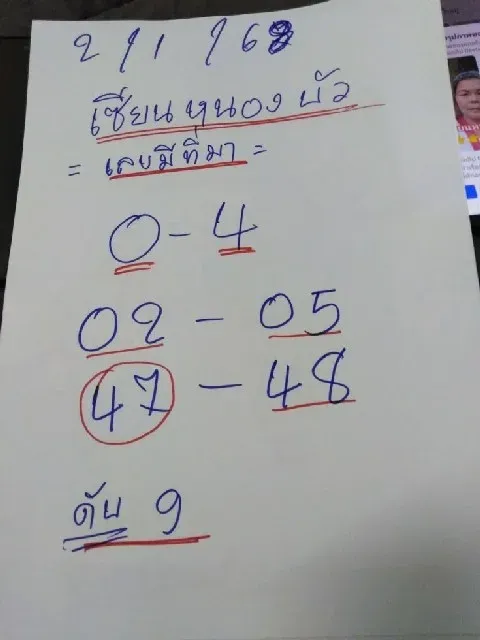 2/1/68
เซียนหนองบัว
= เลขมีที่มา =
0-4
02-05
47-48
ดับ 9